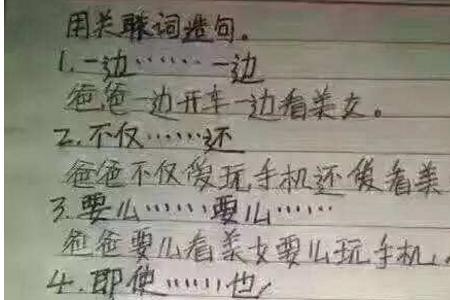 用关联词造句。
1.一边……一边
爸爸一边开车一边看美女。
2.不仅……还
爸爸不仅爱玩手机还爱看美
3.要么……要么……
爸爸要么看美女要么玩手机。
4.即使……也